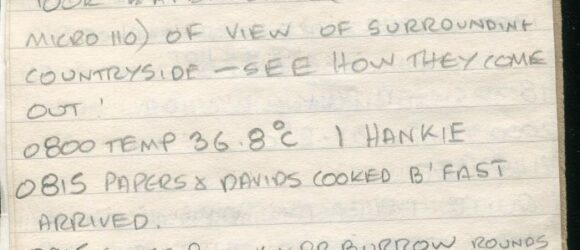 MICRO 110) OF VIEW OF SURROUNDING
COUNTRYSIDE – SEE HOW THEY COME
OUT!
0800 TEMP 36.8°C 1 HANKIE
0815 PAPERS & DAVIDS COOKED B'FAST
ARRIVED.
BURROW ROUNDS